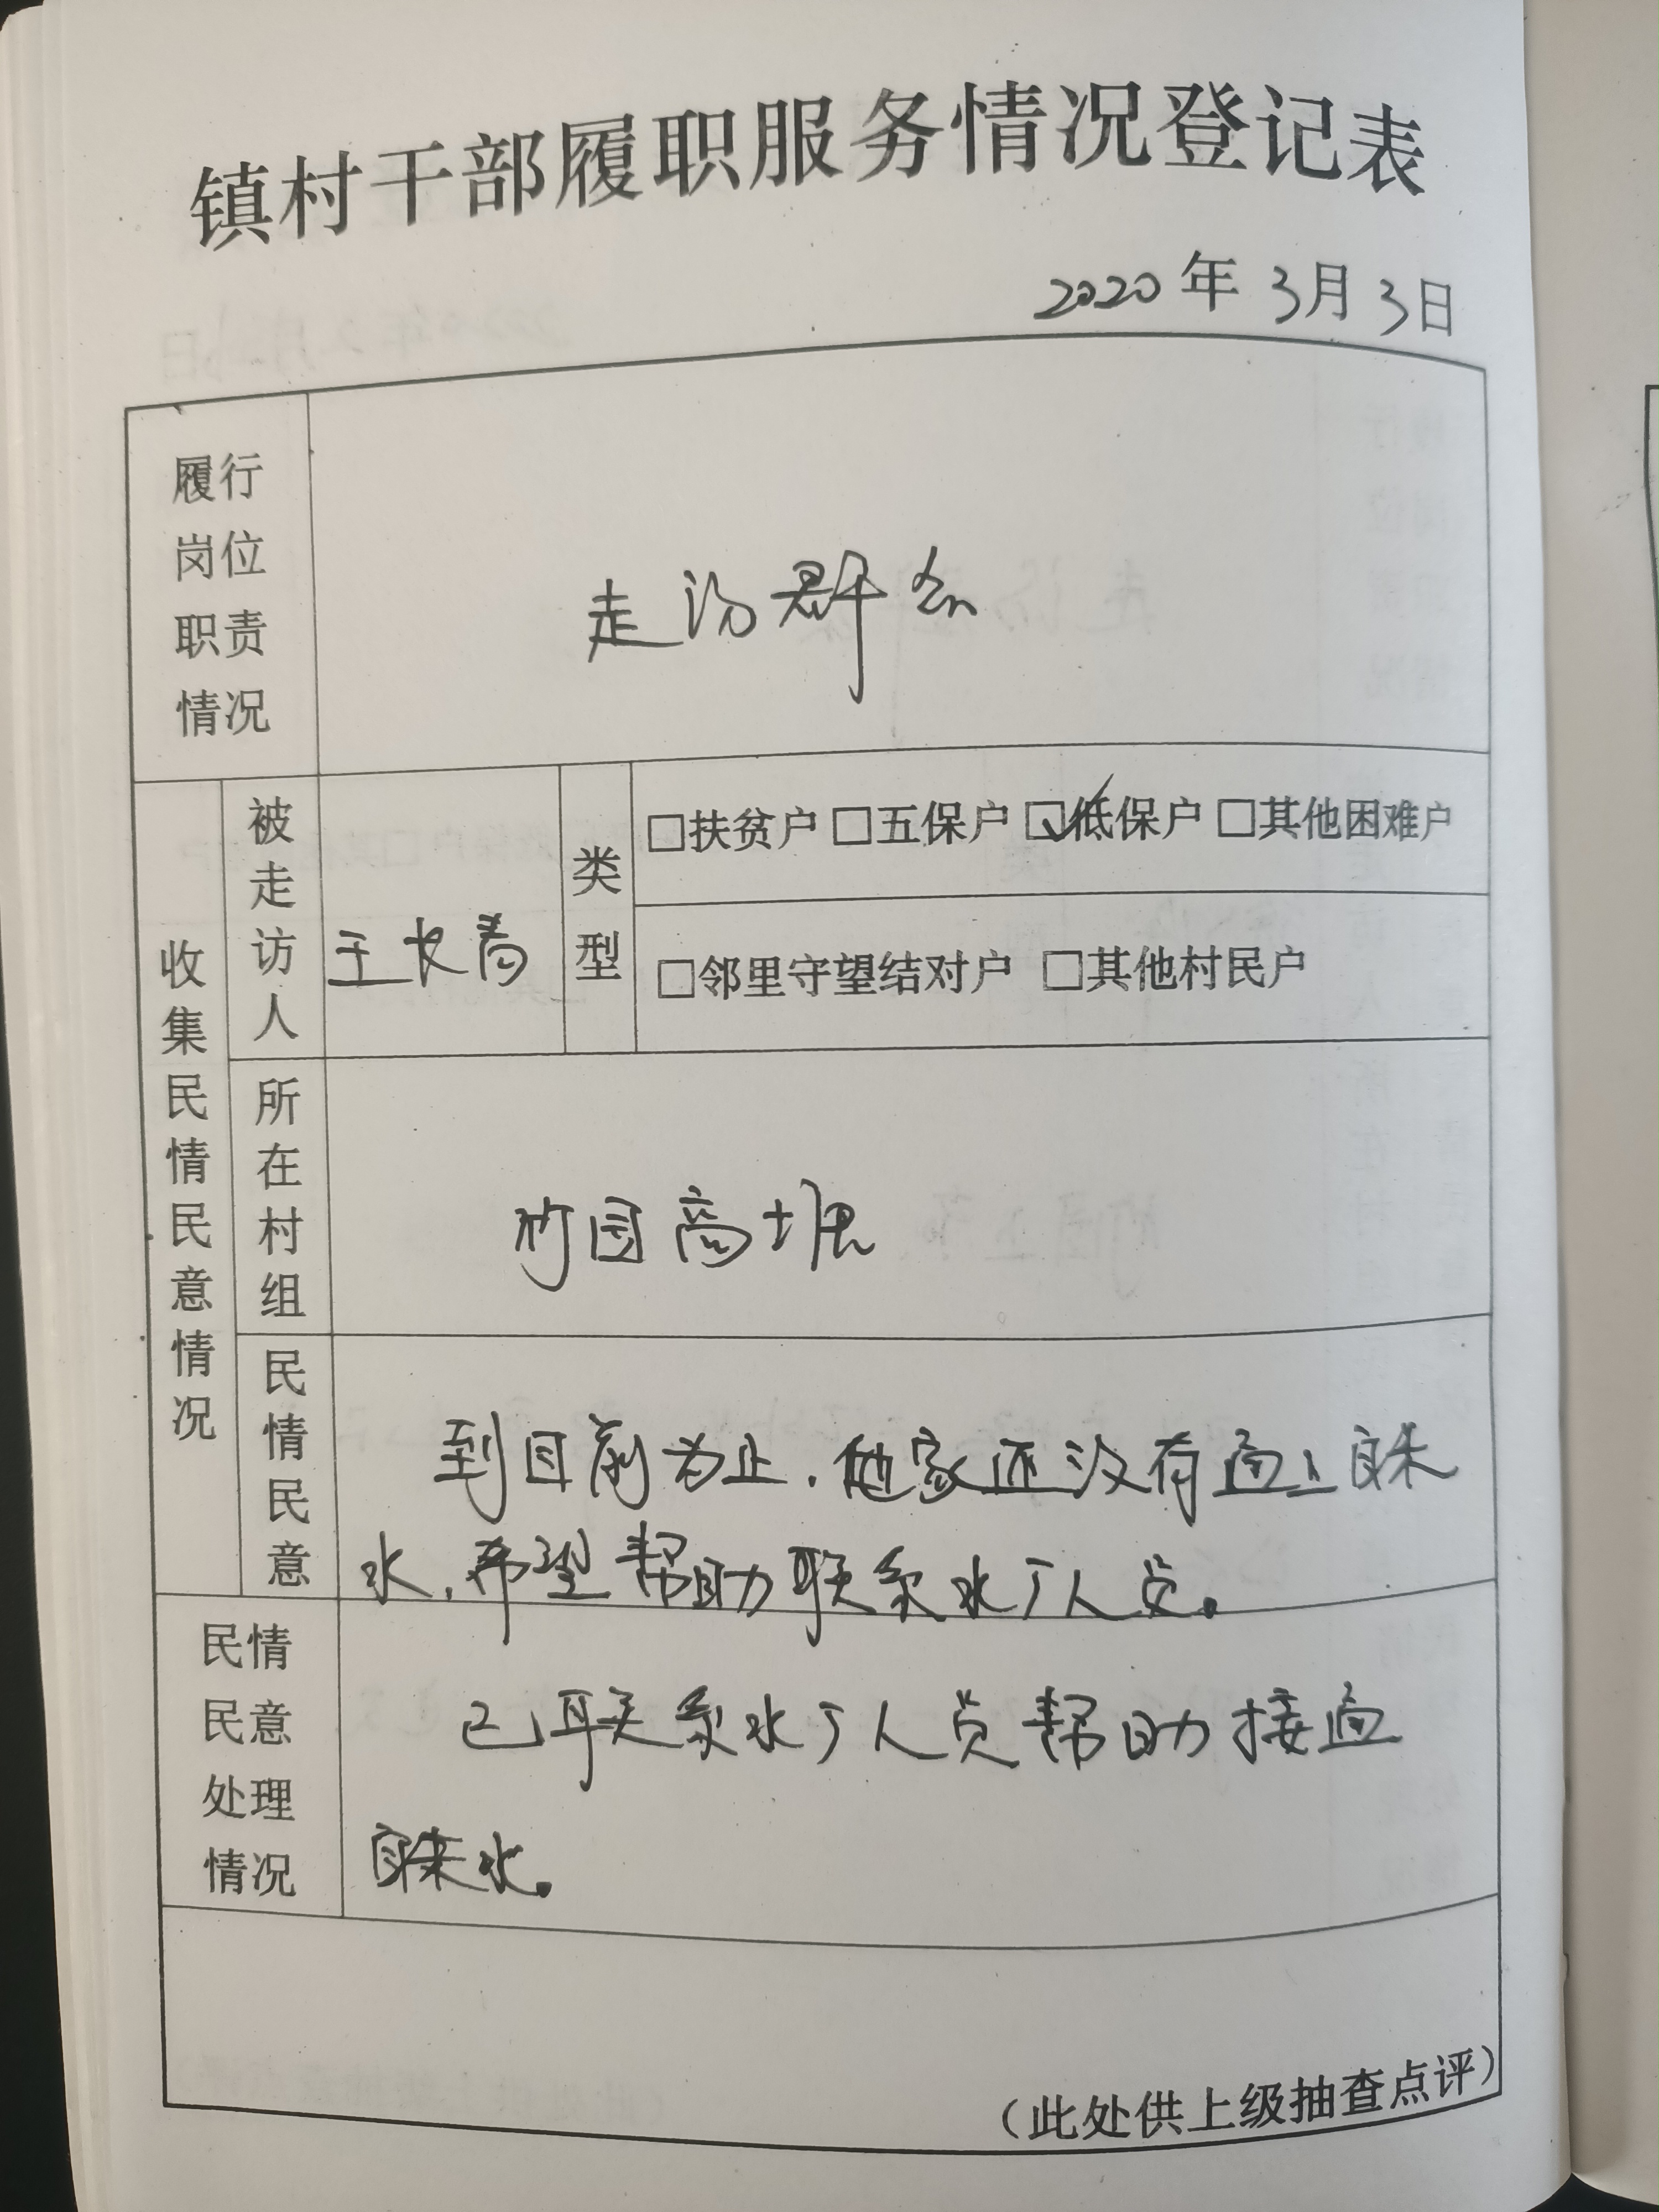 镇村干部履职服务情况登记表
2020年3月3日
履行
岗位
职责
情况
走访群众
收集民情民意情况
被走访人
王长青
类型
□扶贫户 □五保户 ☑低保户 □其他困难户
□邻里守望结对户 □其他村民户
所在村组
竹园高堰
民情民意
到目前为止，他家还没有通上自来
水，希望帮助联系水厂人员。
民情
民意
处理
情况
已联系水厂人员帮助接通
自来水。
（此处供上级抽查点评）